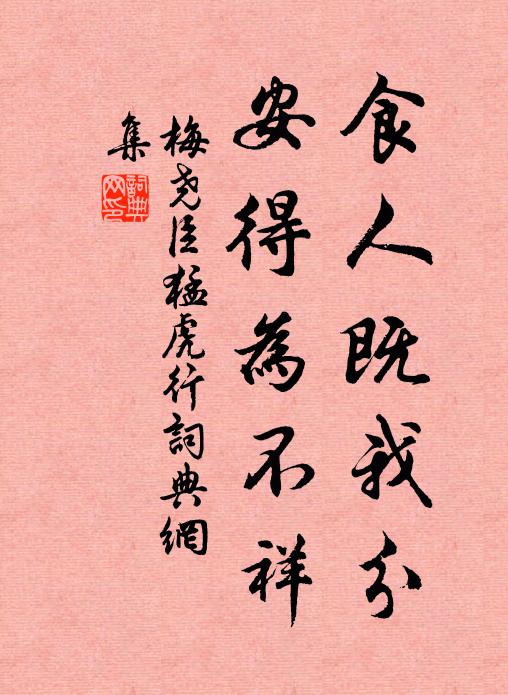 食人既我分
安得為不祥
梅尧臣猛虎行詞典網
集
詞典
网印